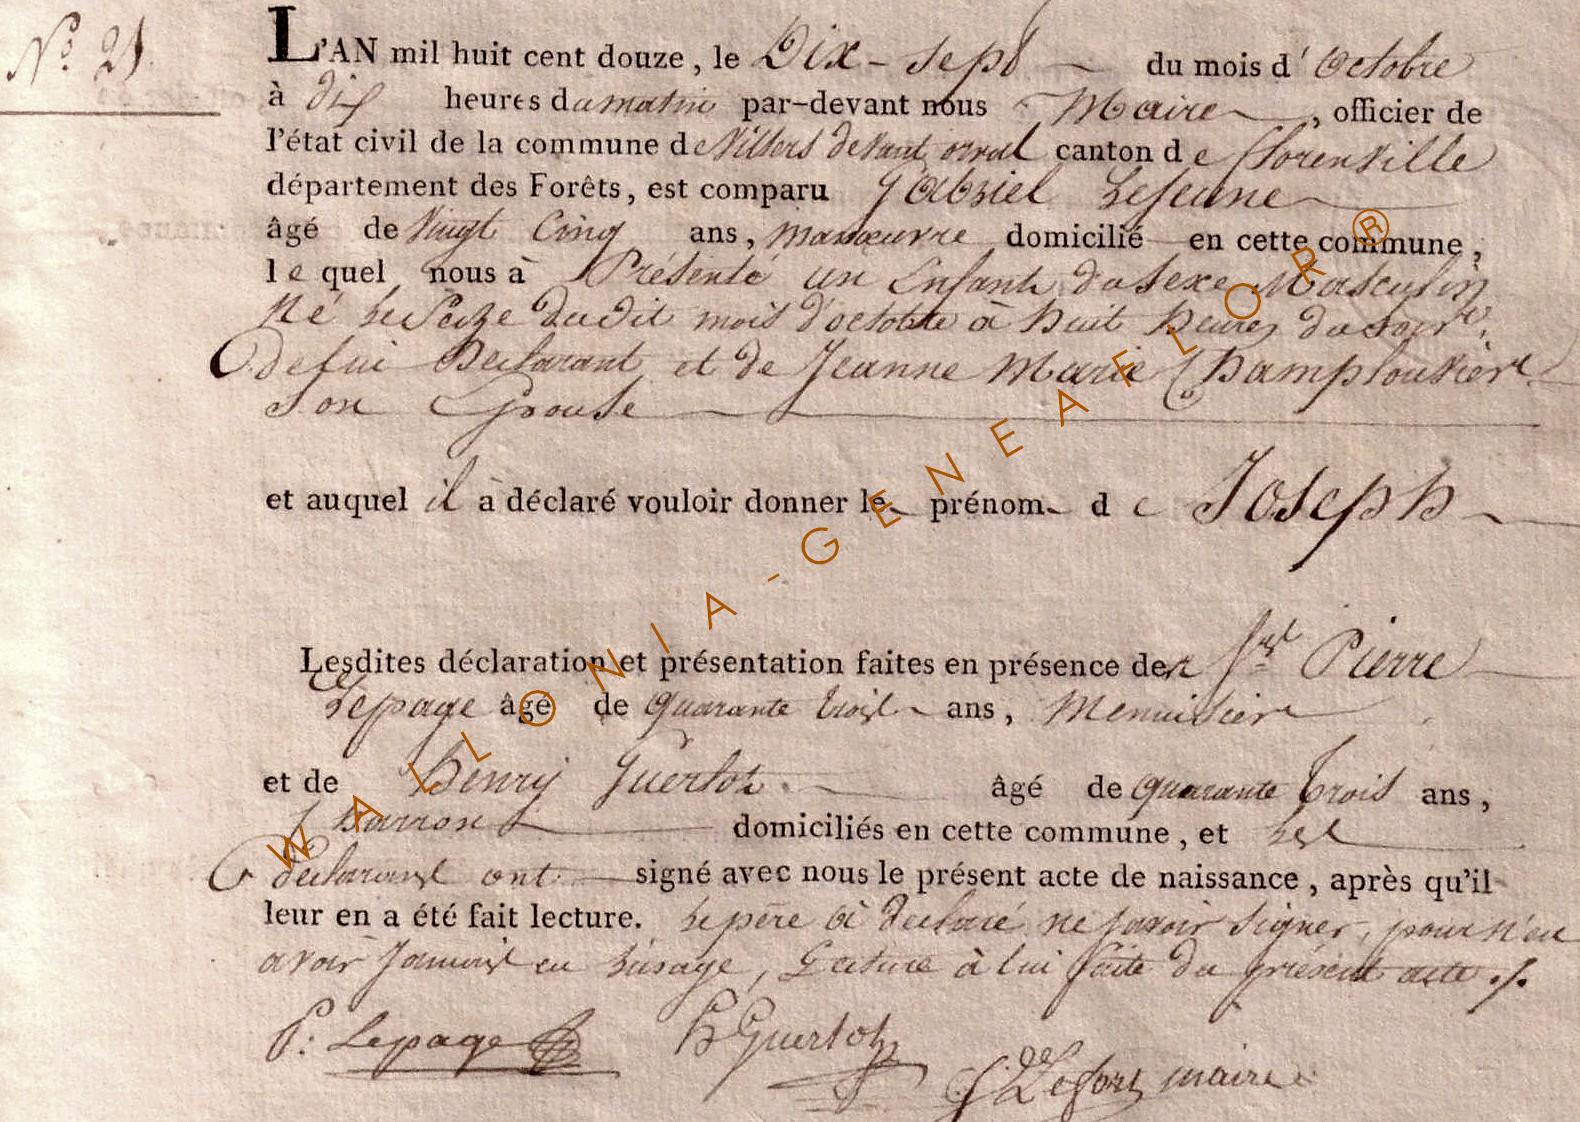 N.º 21.
L'AN mil huit cent douze, le Dix-sept du mois d'Octobre
à dix heures du matin par-devant nous Maire, officier de
l'état civil de la commune de Villers devant orval canton de florenville
département des Forêts, est comparu gabriel Lejeune
âgé de Vingt Cinq ans, manœuvre domicilié en cette commune,
le quel nous à Présenté un Enfant du sexe Masculin
Né Le Seize dudit mois d'octobre à huit heures du soir,
De lui Declarant et de Jeanne Marie Champlouvier
Son Epouse
et auquel il à déclaré vouloir donner le prénom de Joseph
Lesdites déclaration et présentation faites en présence de Pierre
Lepage âgé de quarante trois ans, Menuisier
et de henry guerlot âgé de quarante trois ans,
Charron domiciliés en cette commune, et Les
declarant ont signé avec nous le présent acte de naissance, après qu'il
leur en a été fait lecture. Le père à declaré ne savoir signer, pour n'en
avoir jamais eu L'usage, Lecture à lui faite du présent acte ./.
P: Lepage
h Guerlot
Lefort maire
WALLONIA-GENEAFLOR®